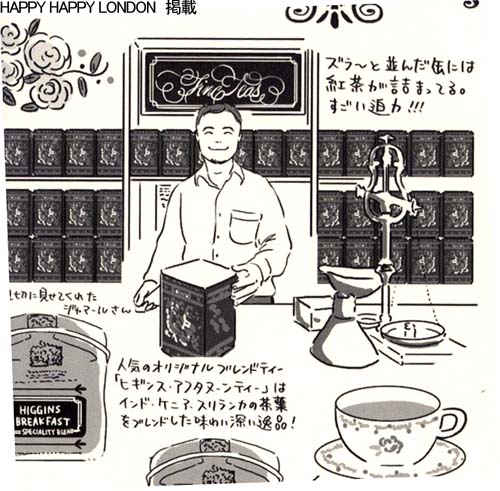 HAPPY HAPPY LONDON 掲載
ズラ〜と並んだ缶には
紅茶が詰まってる。
すごい迫力!!!
Fine Teas
切に見せてくれた
ジャマールさん
HIGGINS
BREAKFAST
SPECIALITY BLEND
人気のオリジナルブレンドティー
「ヒギンス・アフタヌーンティー」は
インド・ケニア・スリランカの茶葉
をブレンドした味わい深い逸品!